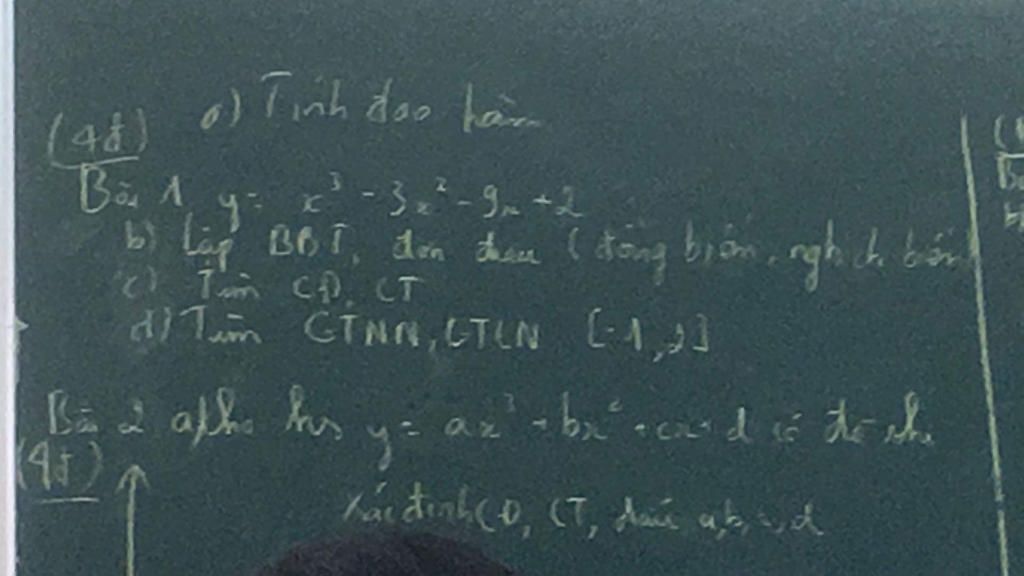 a) Tính đạo hàm
(4đ)
Bài 1 y = x³ - 3x² - 9x + 2
b) Lập BBT, đơn điệu (đồng biến, nghịch biến
c) Tìm CĐ, CT
d) Tìm GTNN, GTLN [-1, 2]
Bài 2 a) Cho hs y = ax³ + bx² + cx + d có đồ thị
(4đ)
Xác định CĐ, CT, dấu a, b, c, d